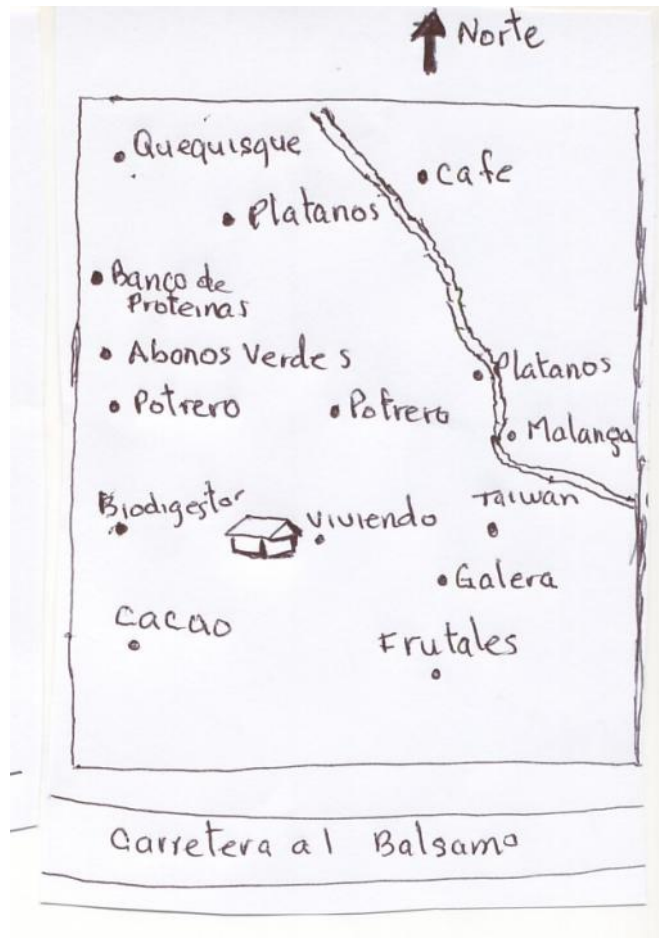 Norte
Quequisque
cafe
Platanos
Banco de
Proteinas
Abonos Verdes
Platanos
Potrero
Potrero
Malanga
Biodigestor
viviendo
TAIWAN
Galera
cacao
Frutales
Carretera al Balsamo